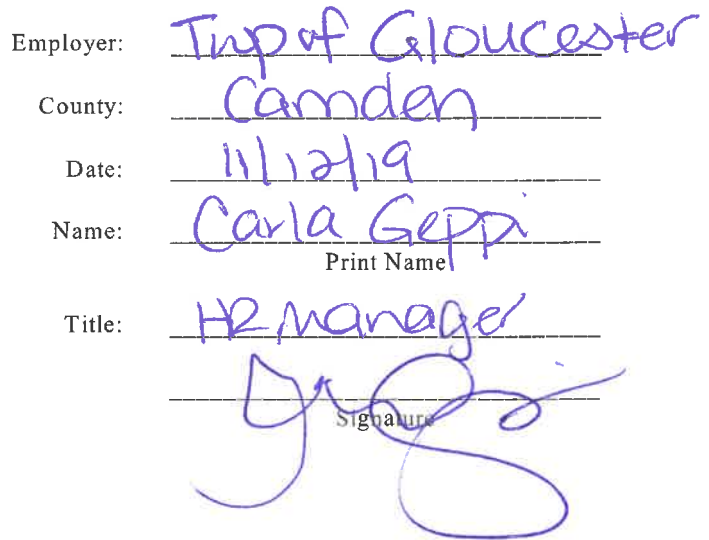 Employer: Twp of Gloucester
County: Camden
Date: 11/12/19
Name: Carla Geppi
Print Name
Title: HR Manager
Signature